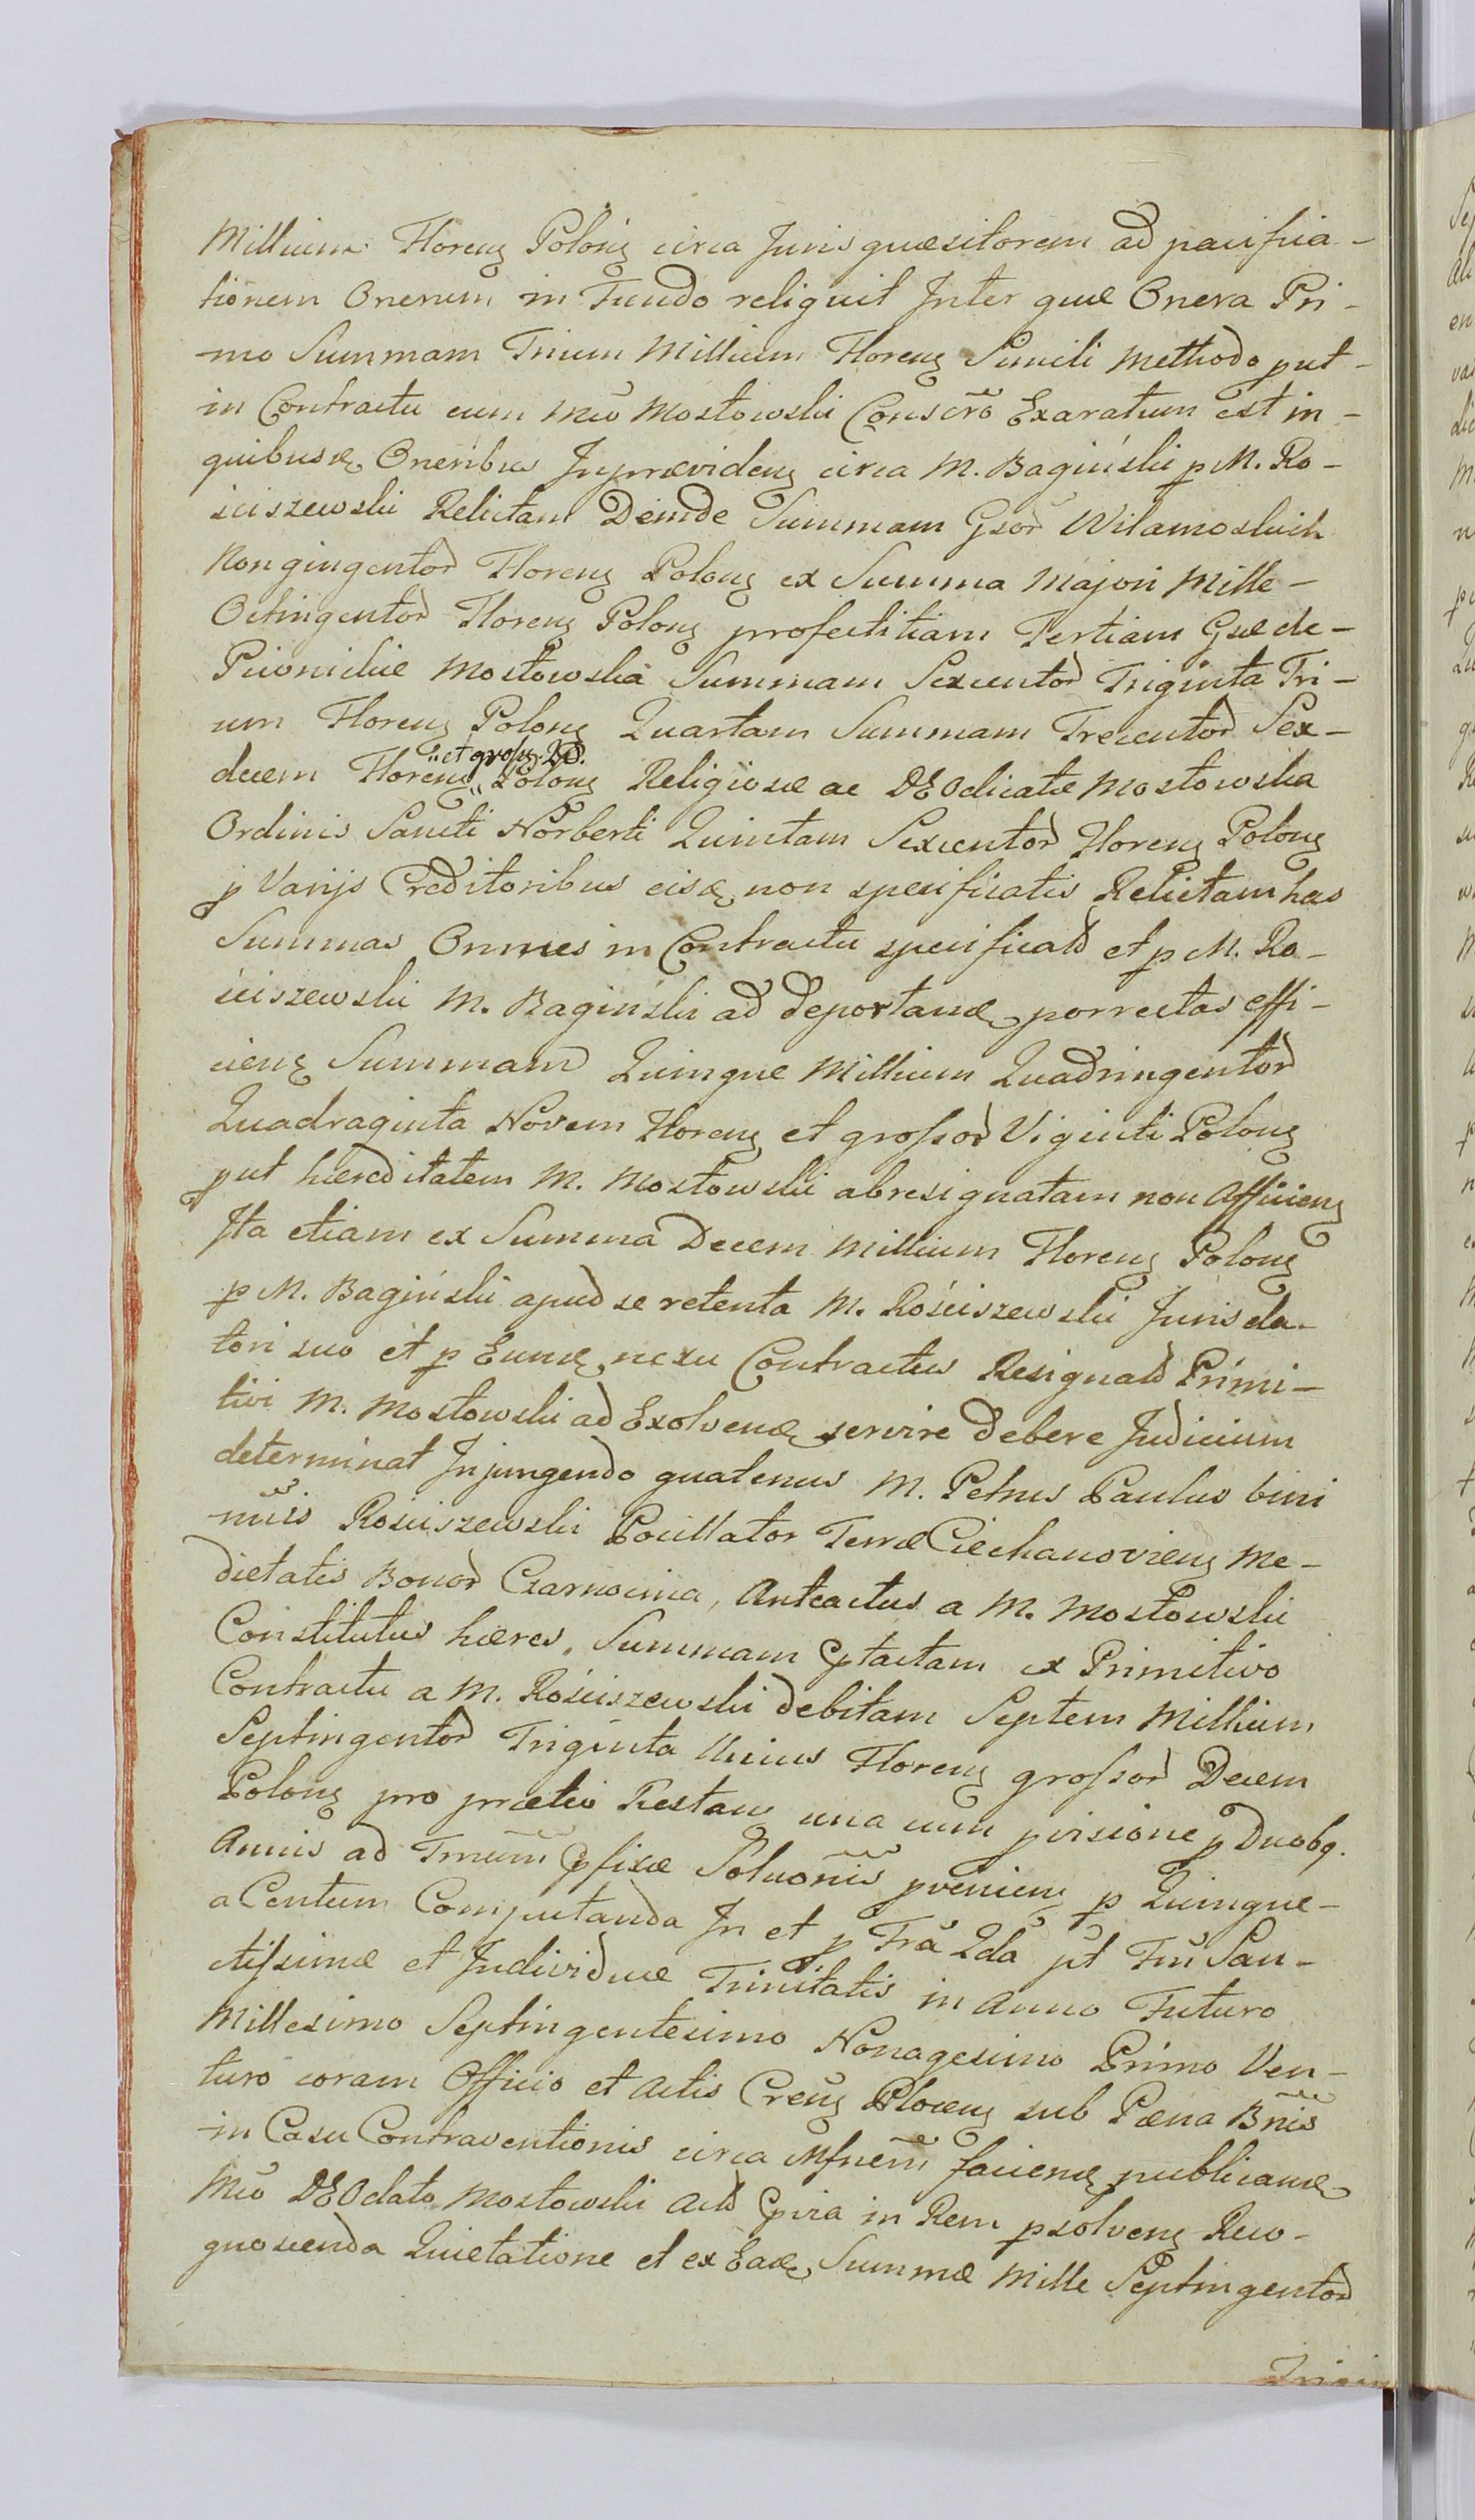 Millium Florenꝫ Polonꝫ circa Juris quæsitorem ad pacifica-
tionem Onerum in Fundo reliquit Inter quæ Onera Pri-
mo Summam Trium Millium Florenꝫ Simili methodo put
in Contractu cum Mco Mostowski Conscro Exaratum est in
quibusæ Oneribus Inprævidenꝫ circa M. Bagiński p M. Ro-
sciszewski Relictam Deinde Summam Gsor Wilamoskich
Nongingentor Florenꝫ Polonꝫ ex Summa Majori Mille-
Octingentor Florenꝫ Polonꝫ profectitiam Tertiam Gsæ de-
Pivonickie Mostowska Summam Sexcentor Triginta Tri-
um Florenꝫ Polonꝫ Quartam Summam Trecentor Sex-
"et grossꝫ. 20.
decem Florenꝫ" Polonꝫ Religiosæ ac DEOdicatæ Mostowska
Ordinis Sancti Norberti Quintam Sexcentor Florenꝫ Polonꝫ
p Varijs Creditoribus eisæ non specificatis Relictam has
Summas Omnes in Contractu specificatd et p M. Ro-
ściszewski M. Bagiński ad deportanæ porrectas effi-
cienꝫ Summam Quinque Millium Quadringentor
Quadraginta Novem Florenꝫ et grossor Viginti Polonꝫ
put hæreditatem M. Mostowski abresignatam non Afficienꝫ
Ita etiam ex Summa Decem Millium Florenꝫ Polonꝫ
p M. Bagiński apud se retenta M. Rościszewski Juris da-
tori suo et p Eunæ nexu Contractus Resignatd Primi-
tivi M. Mostowski ad Exolvenæ servire debere Judicium
determinat Injungendo quatenus M. Petrus Paulus bini
mīs Rosciszewski Pocillator Terræ Ciechanovienꝫ Me-
dietatis Bonor Czarnocina, Anteactus a M. Mostowski
Constitutus hæres, Summam Cptactam ex Primitivo
Contractu a M. Rościszewski debitam Septem Millium
Septingentor Triginta Unius Florenꝫ grossor Decem
Polonꝫ pro prætio Restanꝫ una cum pvisione p Duobq.
Annis ad Tmum Cpfixæ Soluonis pvenienꝫ p Quinque-
a Centum Computanda In et p Fra 2da pt Fm San-
ctissimæ et Individuæ Trinitatis in Anno Futuro
Millesimo Septingentesimo Nonagesimo Primo Ven-
turo coram Officio et Actis Crenꝫ Plocenꝫ sub Pæna Bnis
in Casu Contraventionis circa Mfnem facienæ publicanæ
Mco DEOdato Mostowski actd Cpvia in Rem psolvenꝫ Reco-
gnoscenda Quietatione et ex Eaæ Summæ Mille Septingentor